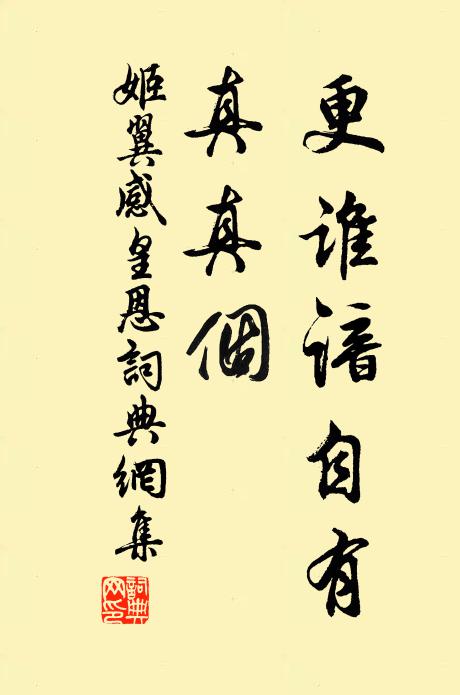 更谁谙自有
真真個
姬翼感皇恩詞典網集
詞典网印